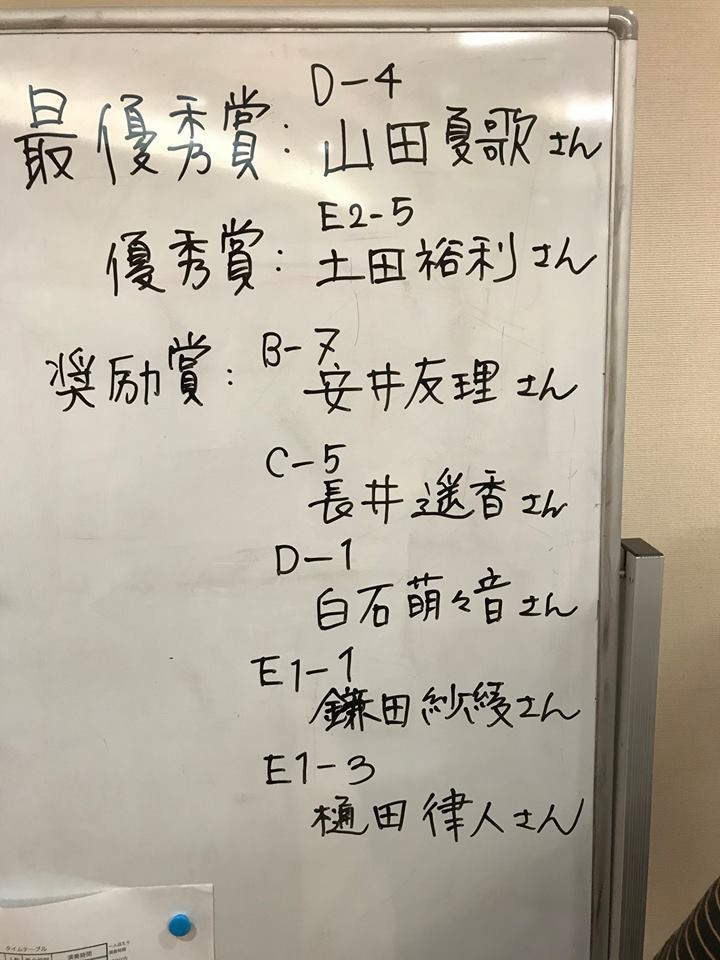 D-4
最優秀賞：山田夏歌さん
E2-5
優秀賞：土田裕利さん
B-7
奨励賞：安井友理さん
C-5
長井遥香さん
D-1
白石萌々音さん
E1-1
鎌田紗綾さん
E1-3
樋田律人さん
タイムテーブル
演奏時間